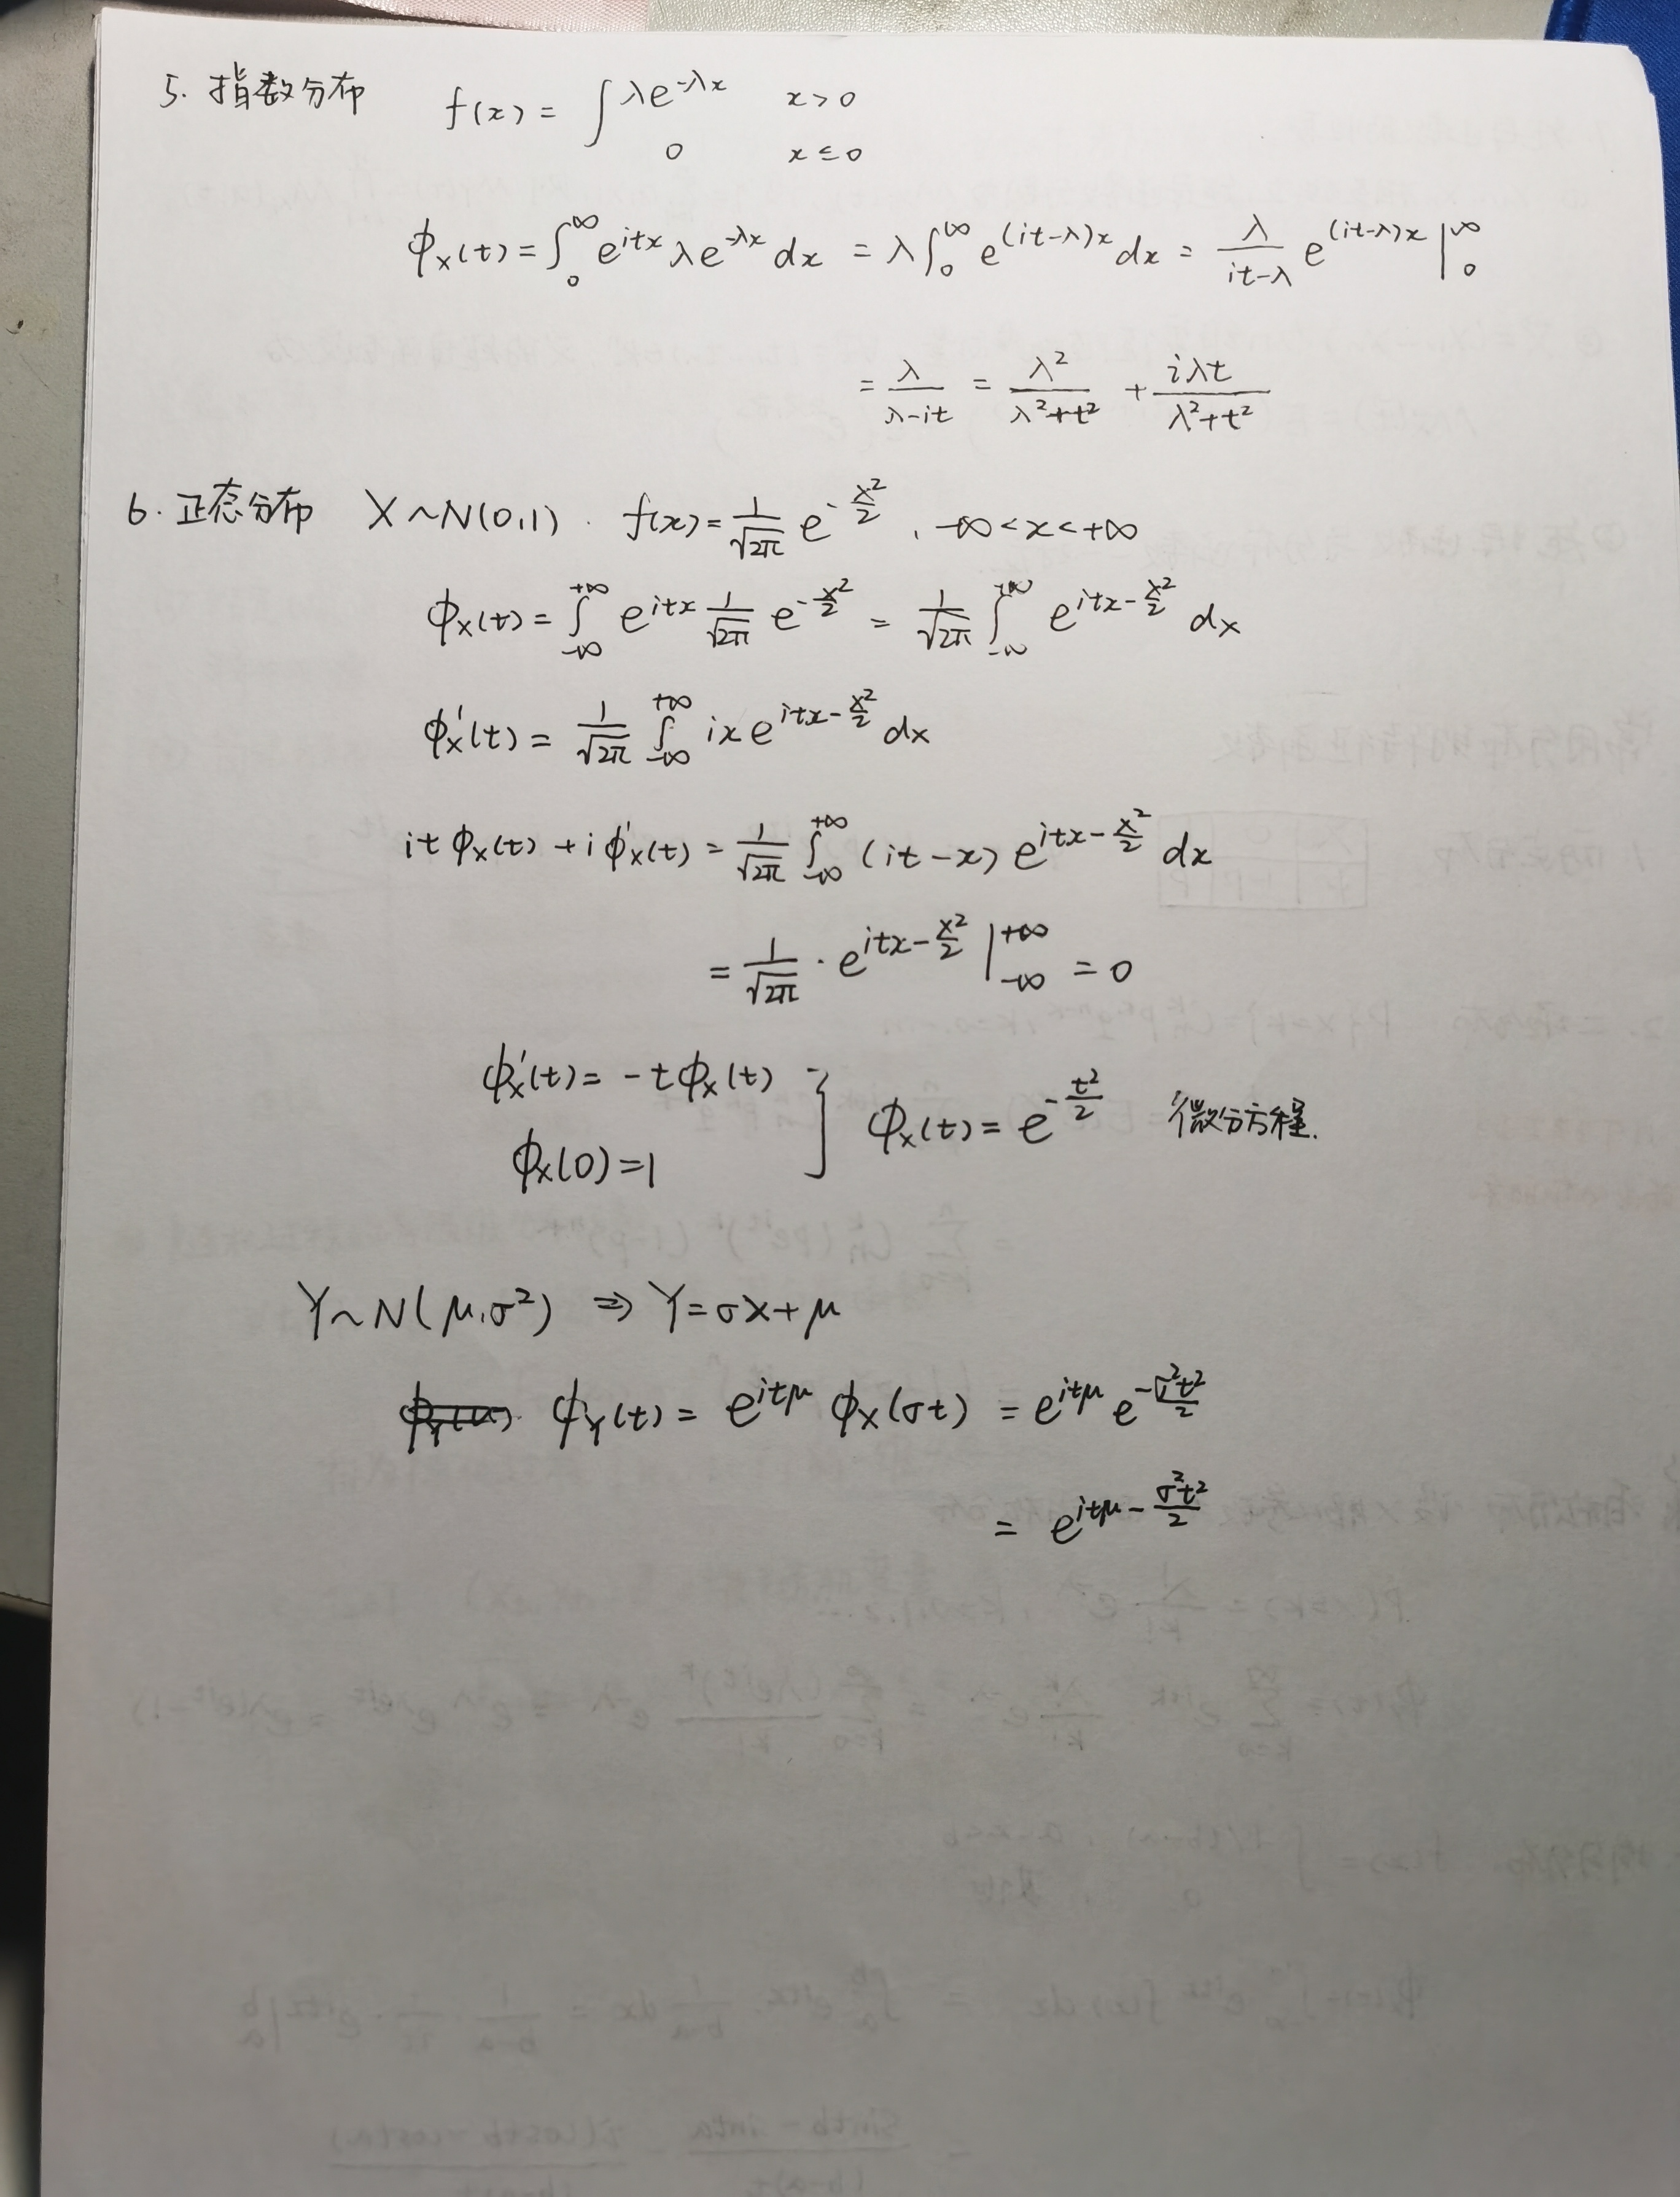 5. 指数分布 f(x) = ∫ λe^{-λx} x>0
0 x≤0
ϕ_X(t) = ∫_0^∞ e^{itx} λe^{-λx} dx = λ∫_0^∞ e^{(it-λ)x} dx = \frac{λ}{it-λ} e^{(it-λ)x} |_0^∞
= \frac{λ}{λ-it} = \frac{λ^2}{λ^2+t^2} + \frac{iλt}{λ^2+t^2}
6. 正态分布 X~N(0,1). f(x) = \frac{1}{\sqrt{2π}} e^{-\frac{x^2}{2}}, -∞<x<+∞
ϕ_X(t) = ∫_{-∞}^{+∞} e^{itx} \frac{1}{\sqrt{2π}} e^{-\frac{x^2}{2}} = \frac{1}{\sqrt{2π}} ∫_{-∞}^{+∞} e^{itx-\frac{x^2}{2}} dx
ϕ_X'(t) = \frac{1}{\sqrt{2π}} ∫_{-∞}^{+∞} ix e^{itx-\frac{x^2}{2}} dx
it ϕ_X(t) + i ϕ_X'(t) = \frac{1}{\sqrt{2π}} ∫_{-∞}^{+∞} (it-x) e^{itx-\frac{x^2}{2}} dx
= \frac{1}{\sqrt{2π}} · e^{itx-\frac{x^2}{2}} |_{-∞}^{+∞} = 0
ϕ_X'(t) = -tϕ_X(t)
ϕ_X(0) = 1 } ϕ_X(t) = e^{-\frac{t^2}{2}} 微分方程.
Y~N(μ,σ^2) ⇒ Y=σX+μ
ϕ_Y(t) = e^{itμ} ϕ_X(σt) = e^{itμ} e^{-\frac{σ^2t^2}{2}}
= e^{itμ-\frac{σ^2t^2}{2}}